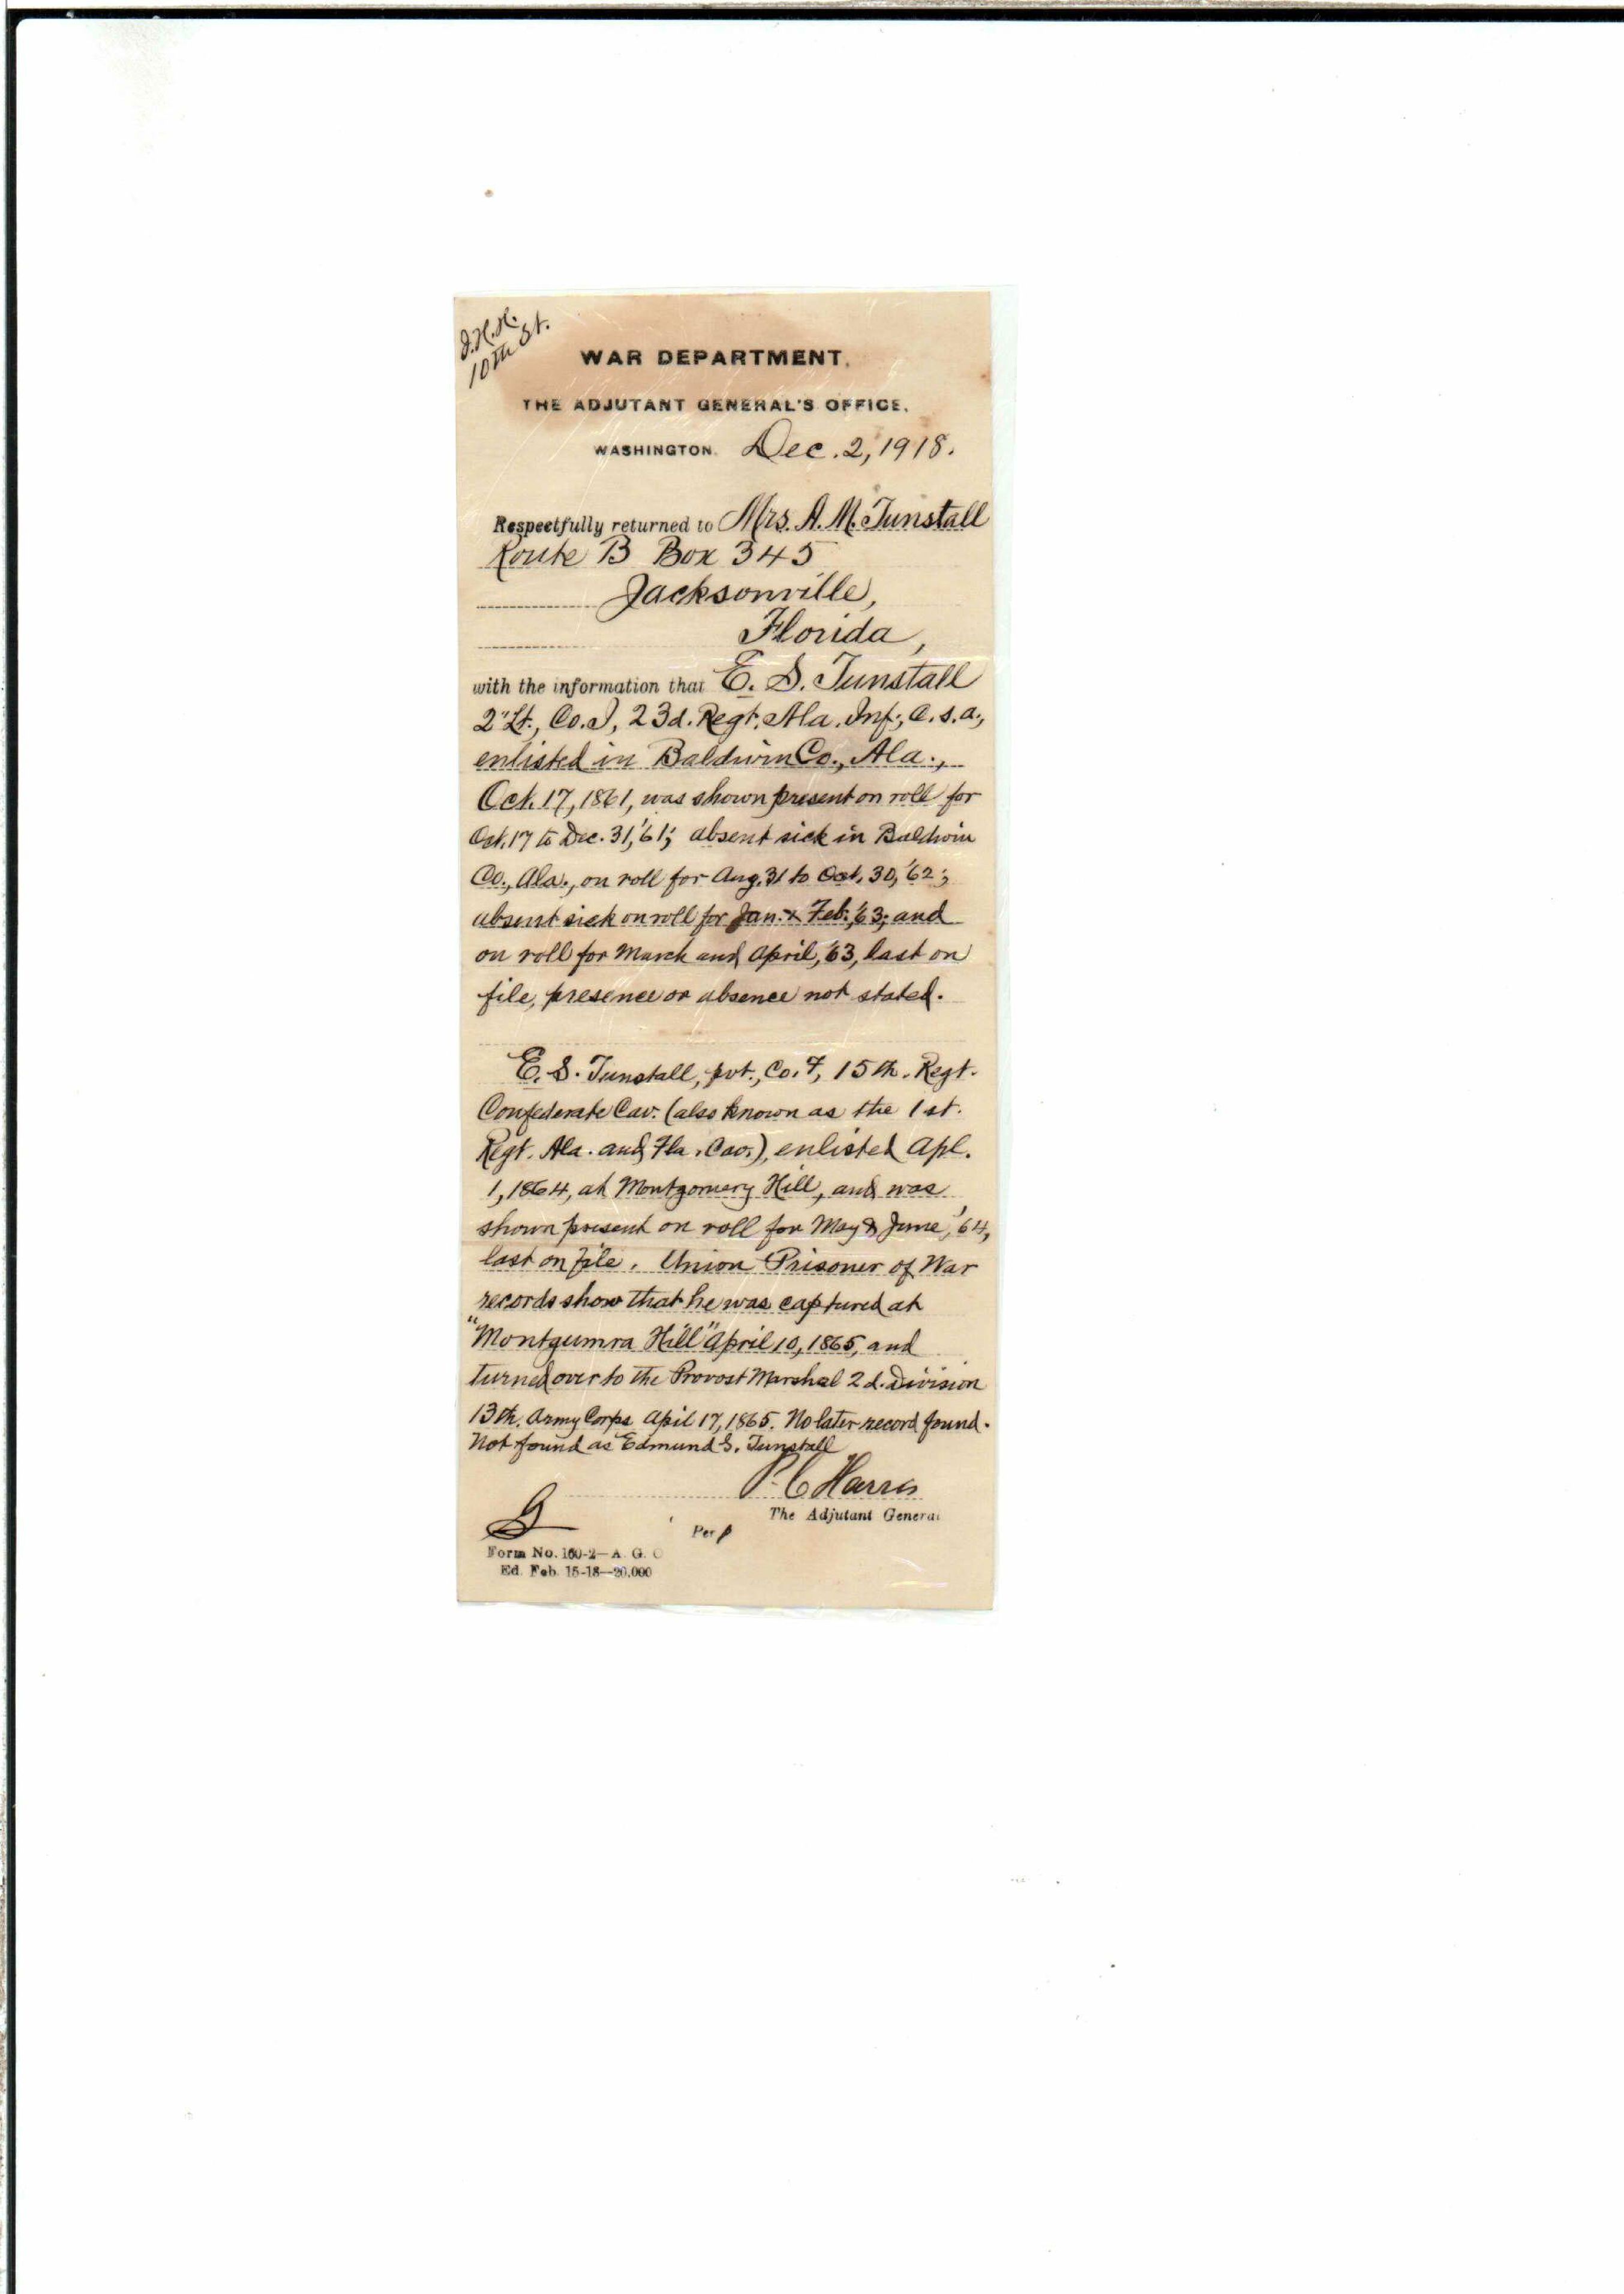 J.H.H.
10th St.
WAR DEPARTMENT,
THE ADJUTANT GENERAL'S OFFICE,
WASHINGTON, Dec. 2, 1918.
Respectfully returned to Mrs. A. M. Tunstall
Route B Box 345
Jacksonville,
Florida,
with the information that E. S. Tunstall
2" Lt., Co. I, 23d. Regt. Ala. Inf., C.S.A.,
enlisted in Baldwin Co., Ala.,
Oct. 17, 1861, was shown present on roll for
Oct. 17 to Dec. 31, '61; absent sick in Baldwin
Co., Ala., on roll for Aug. 31 to Oct. 30, '62;
absent sick on roll for Jan. & Feb. '63; and
on roll for March and April, '63, last on
file, presence or absence not stated.
E. S. Tunstall, pvt., Co. F, 15th. Regt.
Confederate Cav. (also known as the 1st.
Regt. Ala. and Fla. Cav.), enlisted Apl.
1, 1864, at Montgomery Hill, and was
shown present on roll for May & June, '64,
last on file. Union Prisoner of War
records show that he was captured at
"Montgumra Hill" April 10, 1865, and
turned over to the Provost Marshal 2d. Division
13th. Army Corps April 17, 1865. No later record found.
Not found as Edmund S. Tunstall
P. C. Harris
The Adjutant General
G
Per
Form No. 160-2—A. G. O
Ed. Feb. 15-18—20,000